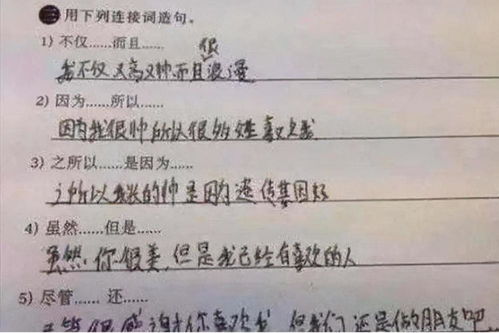 三 用下列连接词造句。
1) 不仅……而且……
很
我不仅又高又帅而且浪漫
2) 因为……所以……
因为我很帅所以很多女生喜欢我
3) 之所以……是因为……
之所以我长的帅是因为遗传基因好
4) 虽然……但是……
虽然你很美,但是我已经有喜欢的人
5) 尽管…… 还……
尽管很感谢你喜欢我 但我们还是做朋友吧